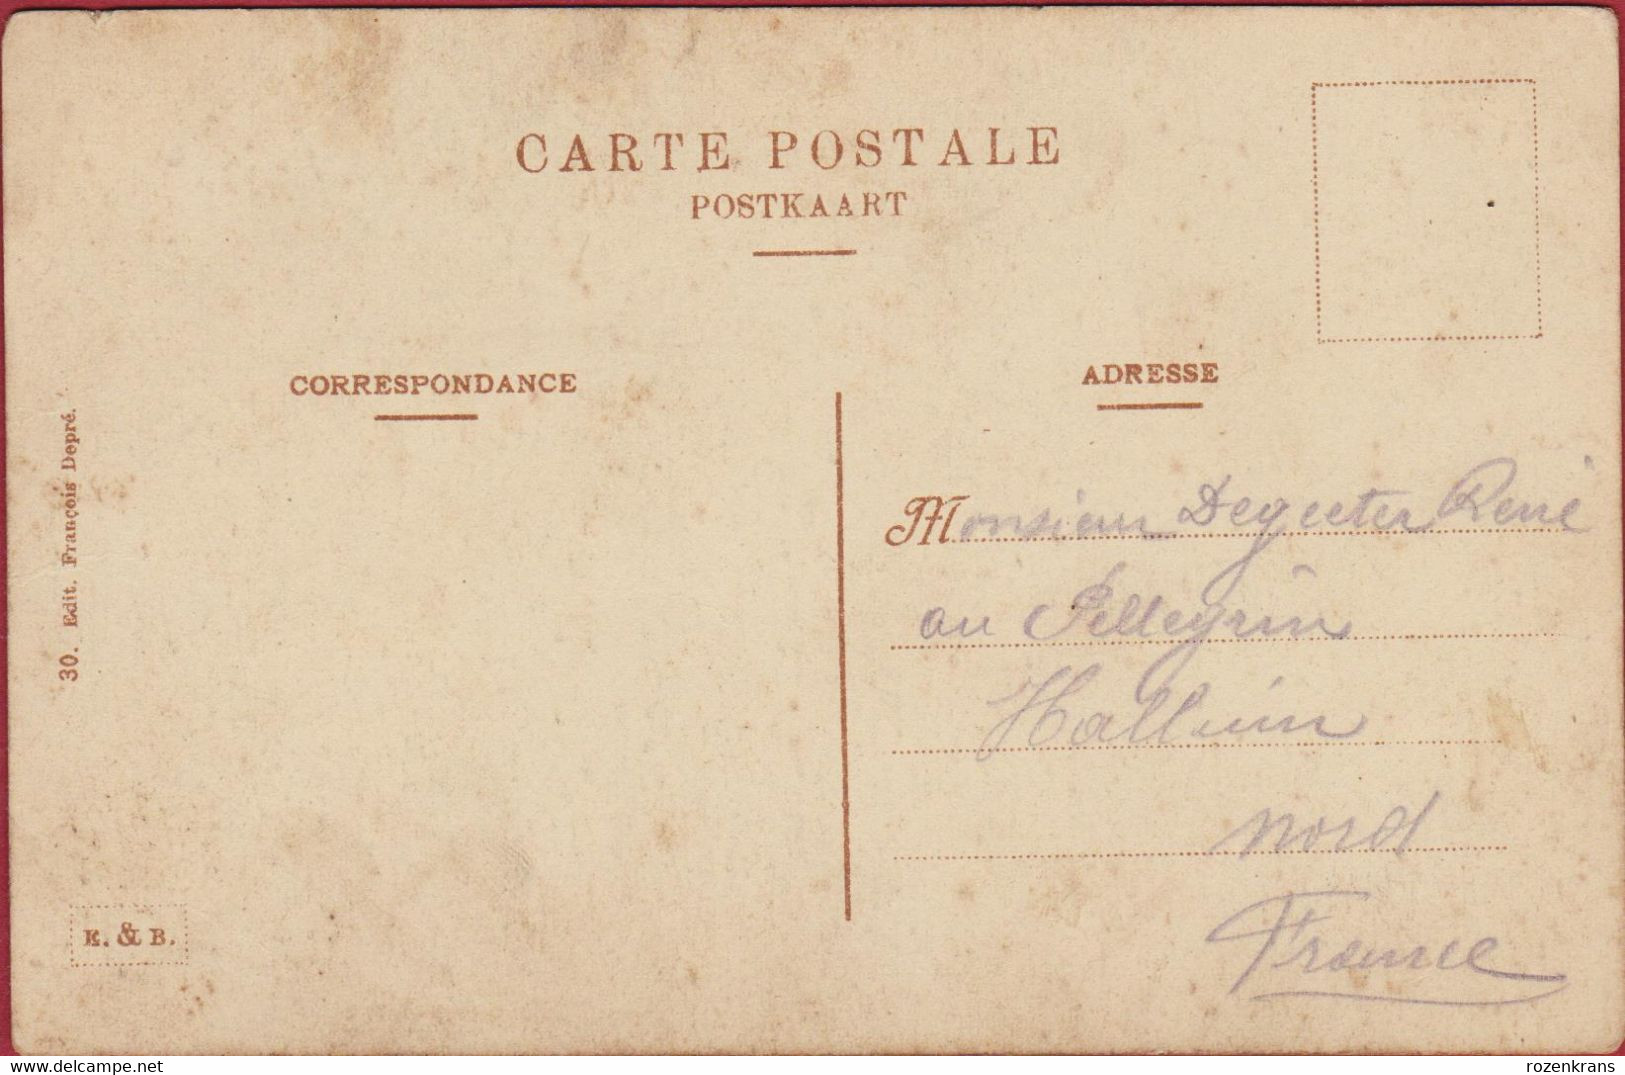 CARTE POSTALE
POSTKAART
CORRESPONDANCE
ADRESSE
30. Edit. François Depré.
E. & B.
Monsieur Degeeter René
au Pellegrin
Halluin
Nord
France
delcampe.net
rozenkrans